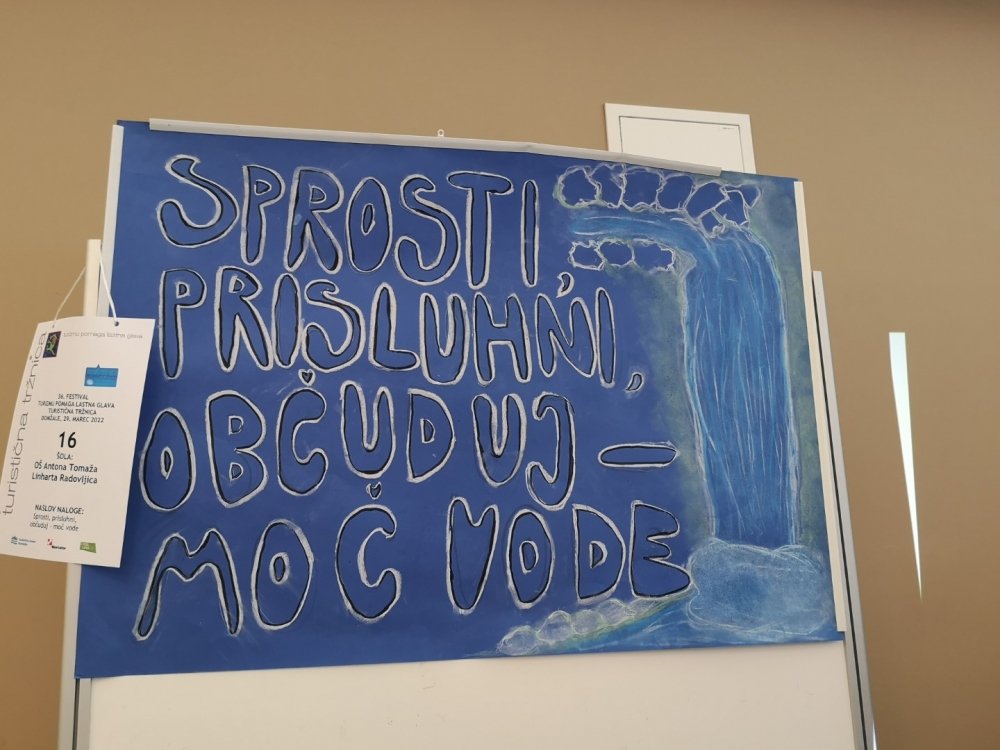 SPROSTI,
PRISLUHNI,
OBČUDUJ –
MOČ VODE
turistična tržnica
turizmu pomaga lastna glava
36. FESTIVAL
TURIZMU POMAGA LASTNA GLAVA
TURISTIČNA TRŽNICA
DOMŽALE, 29. MAREC 2022
16
ŠOLA:
OŠ Antona Tomaža
Linharta Radovljica
NASLOV NALOGE:
Sprosti, prisluhni,
občuduj - moč vode
Mercator